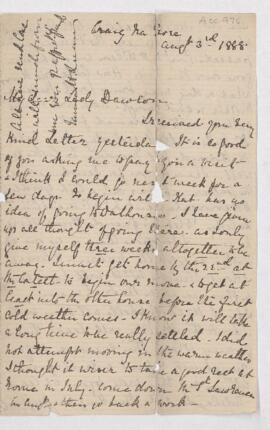 Acc 976
Craig na Gore
Augt 3rd 1888
My Lady Dawson
I received your very
kind Letter yesterday. It is so good
of you asking me to pay you a visit
& I think I could go next week for a
few days to begin with. That has no
idea of going to Dalhousie - I have given
up all thought of going there. as I only
give myself three weeks altogether to be
away. I must get home by the 22nd at
the latest to begin our move - & get at
least into the other house before the first
cold weather comes - I know it will take
a long time to be really settled. I did
not attempt moving in the warm weather
I thought it wiser to take a good rest at
home in July. come down the St Lawrence
in August & then go back & work -